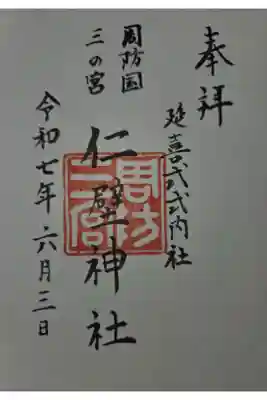 奉拝
延喜式式内社
周防国
三の宮
仁壁神社
令和七年六月三日
周防
三宮